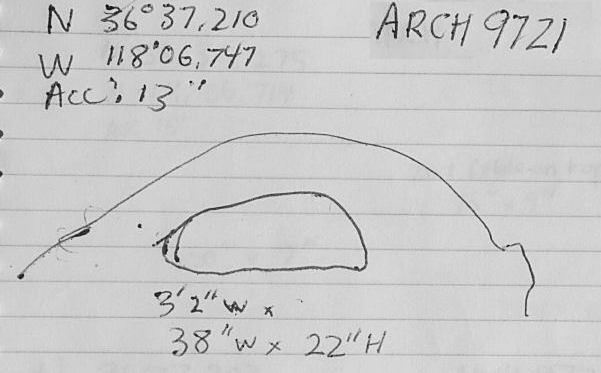 N 36°37.210
ARCH 9721
W 118°06.747
Acc: 13"
3'2"W x
38"W x 22"H